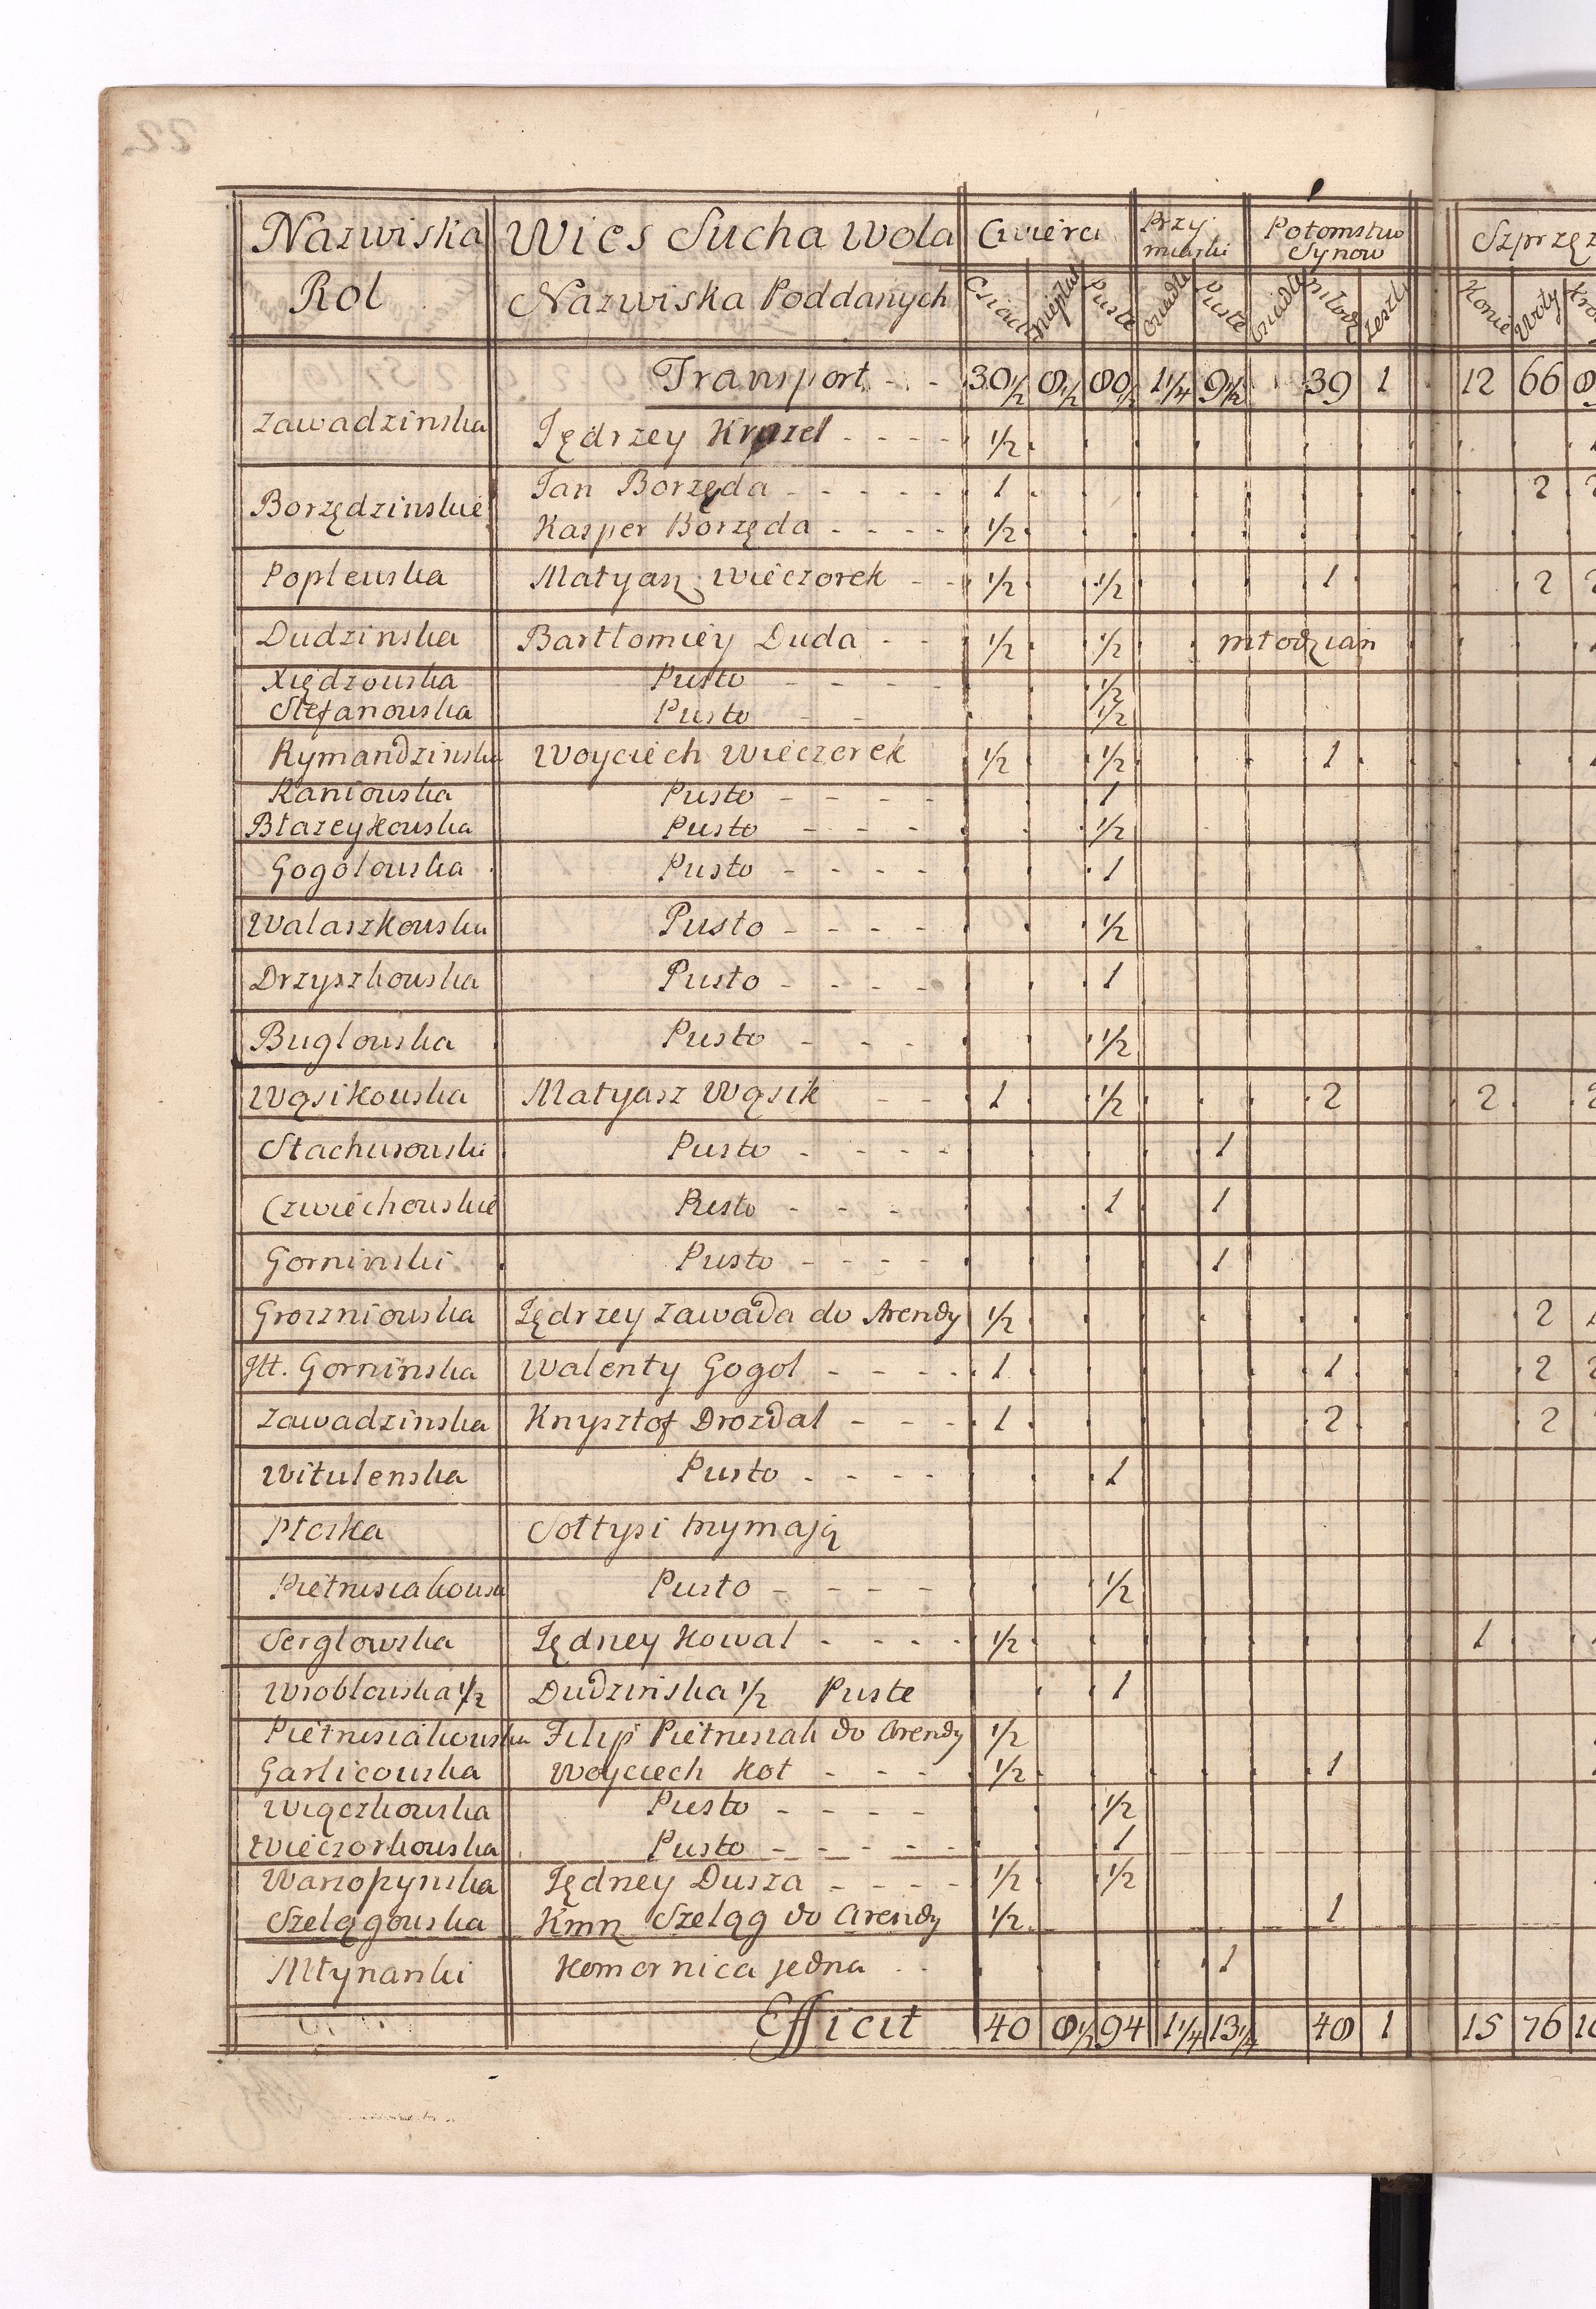 Nazwiska Wies Sucha Wola Cwierci Przy Potomstwo
miarki Synow Szprzęż
Rol Nazwiska Poddanych Osiad Puste Osiadłe Puste Osiadłe Młodz Zeszli Konie Woły
Transport - - - 30 1/2 8 1/2 80 1/2 1 1/4 9 1/4 39 1 12 66
Zawadzinska Jędrzey - - - - 1/2
Jan Borzęda - - - - - 1 2
Borzędzinskie
Kasper Borzęda - - - - 1/2
Poplewska Matyasz Wieczorek - - 1/2 1/2 1 2
Dudzinska Bartłomiey Duda - - 1/2 1/2 młodzian
Xiędzowska Pusto - - - - 1/2
Stefanowska Pusto - - 1/2
Rymandzinska Woyciech Wieczorek 1/2 1/2 1
Kaniowska Pusto - - - - 1
Błazeykowska Pusto - - - 1/2
Gogolowska Pusto - - - - 1
Walaszkowska Pusto - - - - 1/2
Drzyszkowska Pusto - - - - 1
Buglowska Pusto - - - 1/2
Wąsikowska Matyasz Wąsik - - 1 1/2 2 2
Stachurowski Pusto - - - - 1
Czwiechowskie Pusto - - - - 1 1
Gorninski Pusto - - - - 1
Groszniowska Jędrzey Zawada do Arendy 1/2 2
Gorninska Walenty Gogol - - - - 1 1 2
Zawadzinska Krzysztof Drozdal - - - 1 2 2
Witulenska Pusto - - - - 1
Ploska Sołtysi trzymają
Pietrusiakowska Pusto - - - - 1/2
Serglowska Jędrzey Kowal - - - - 1/2 1
Wroblowska 1/2 Dudzinska 1/2 Puste 1
Pietrusiakowska Filip Pietrusiak do Arendy 1/2
Garlicowska Woyciech Kot - - - 1/2 1
Wiączkowska Pusto - - - - 1/2
Wieczorkowska Pusto - - - - - 1
Wanopynska Jędrzey Dusza - - - - 1/2 1/2
Szelągowska Kmrz Szeląg do Arendy 1/2 1
Młynarski Komornica jedna - - 1
Efficit 40 8 1/2 94 1 1/4 13 1/4 48 1 15 76